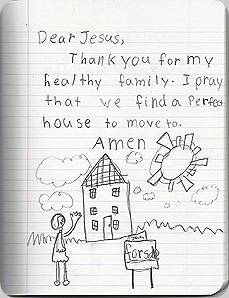 Dear Jesus,
Thank you for my
healthy family. I pray
that we find a Perfect
house to move to.
Amen
for sale